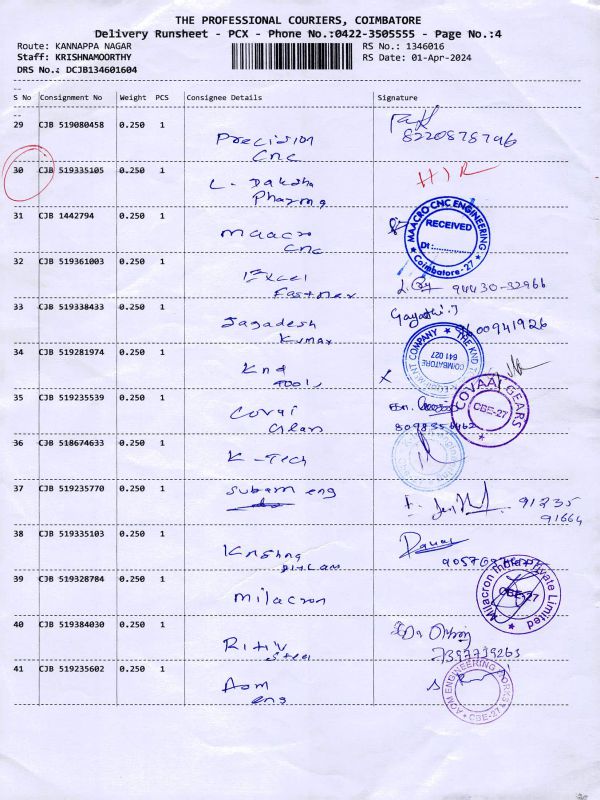 THE PROFESSIONAL COURIERS, COIMBATORE
Delivery Runsheet - PCX - Phone No.:0422-3505555 - Page No.:4
Route: KANNAPPA NAGAR RS No.: 1346016
Staff: KRISHNAMOORTHY RS Date: 01-Apr-2024
DRS No.: DCJB134601604
S No Consignment No Weight PCS Consignee Details Signature
29 CJB 519080458 0.250 1
Precision
CNC
8220878796
30 CJB 519335105 0.250 1
L. Daksha
Pharma
31 CJB 1442794 0.250 1
Maacro
CNC
MAACRO CNC ENGINEERING
RECEIVED
Dt:
Coimbatore-27
32 CJB 519361003 0.250 1
Excel
Fastner
94430-32966
33 CJB 519338433 0.250 1
Jagadesh
Kumar
Gayathri.J
00941926
34 CJB 519281974 0.250 1
Knd
Tools
COIMBATORE
641 027
35 CJB 519235539 0.250 1
Covai
Gears
COVAAI GEARS
CBE-27
36 CJB 518674633 0.250 1
K-Tech
37 CJB 519235770 0.250 1
Subam eng
91235
91664
38 CJB 519335103 0.250 1
Krishna
39 CJB 519328784 0.250 1
Milacron
Milacron India Private Limited
CBE-27
40 CJB 519384030 0.250 1
Ritiv
Steel
7397739263
41 CJB 519235602 0.250 1
Aom
eng
AOM ENGINEERING WORKS
CBE-27